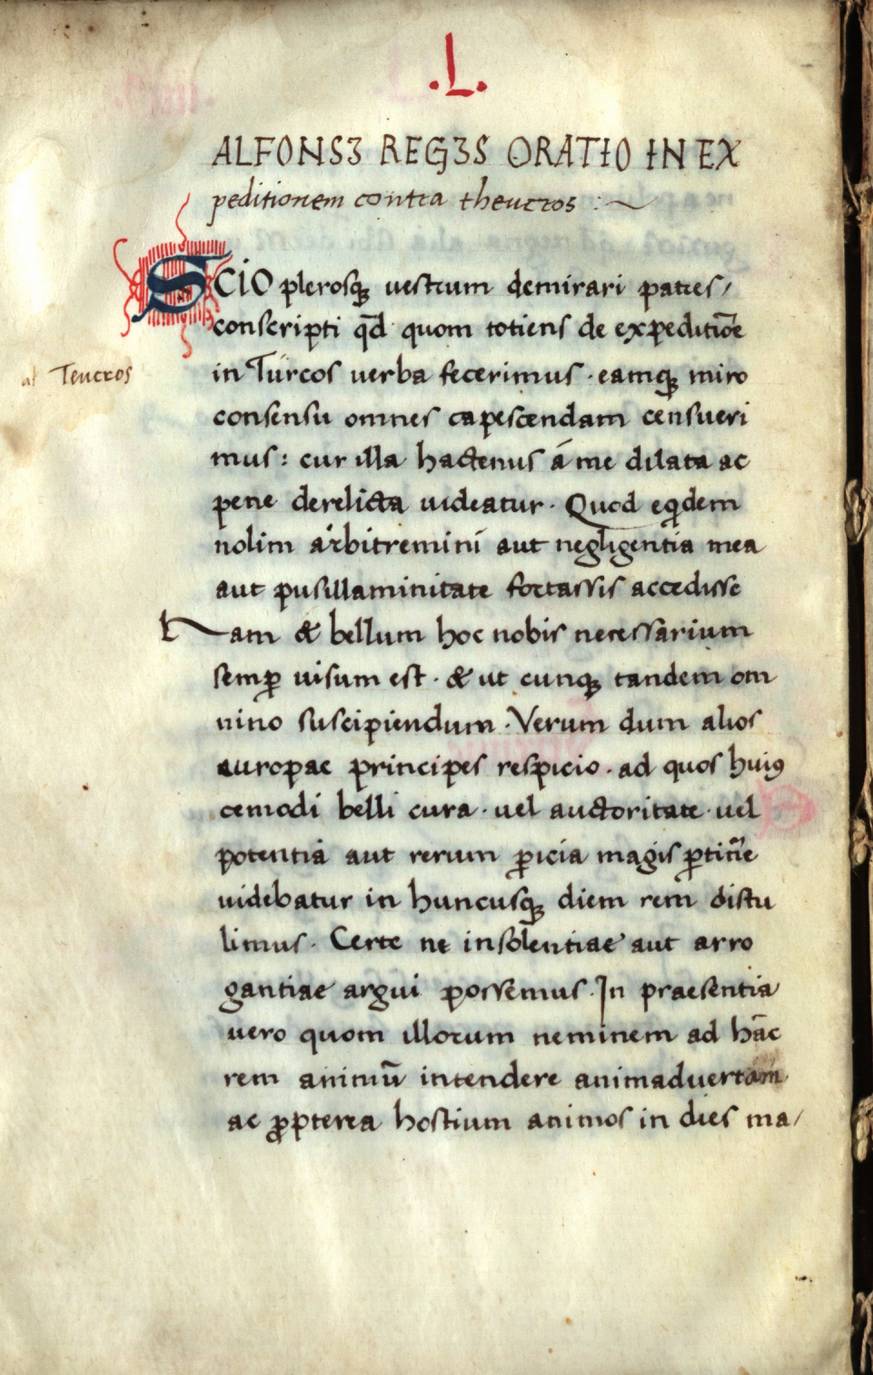 .L.
ALFONSI REGIS ORATIO IN EX
peditionem contra theucros :~
SCIO plerosqꝫ vestrum demirari patres/
conscripti qd̄ quom totiens de expeditiōe
al Teucros
in Turcos verba fecerimus · eamqꝫ miro
consensu omnes capescendam censueri
mus: cur illa hactenus á me dilata ac
pene derelicta uideatur · Quod eqdem
nolim arbitremini aut negligentia mea
aut pusillaminitate fortassis accedisse
Nam & bellum hoc nobis necessarium
semꝑ uisum est · & ut cunqꝫ tandem om
nino suscipiendum · Verum dum alios
auropae principes respicio · ad quos huiꝰ
cemodi belli cura · uel auctoritate · uel
potentia aut rerum ꝑicia magis ꝑtiñe
uidebatur in huncusqꝫ diem rem distu
limus · Certe ne insolentiae aut arro
gantiae argui possemus · In praesentia
vero quom illorum neminem ad hāc
rem animū intendere animadvertam
ac ꝓpterea hostium animos in dies ma/